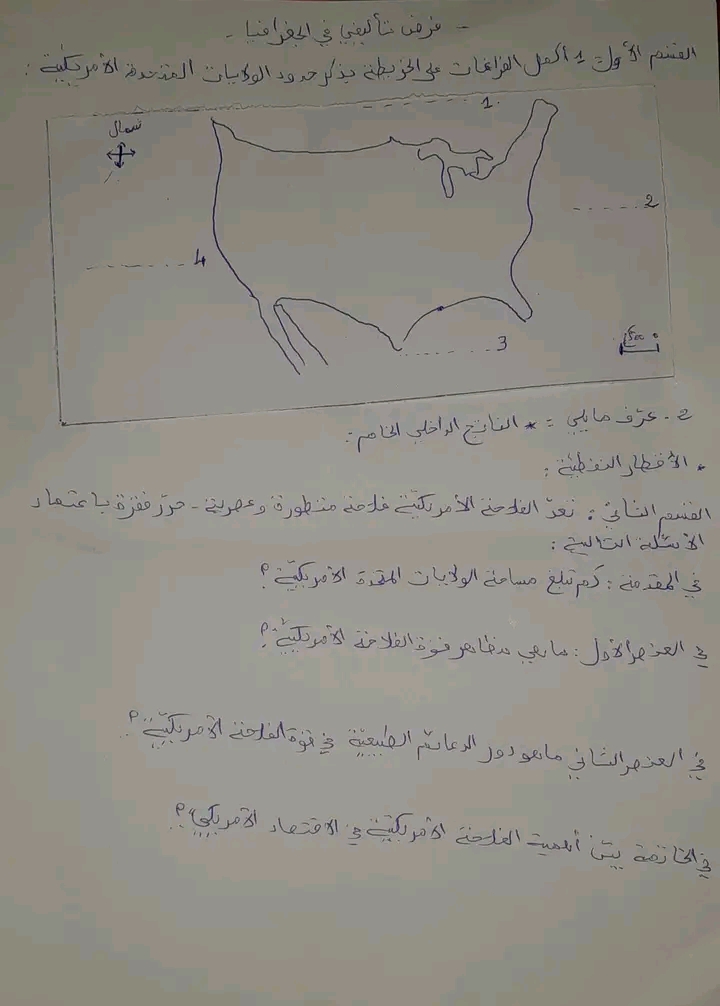 - فرض تأليفي في الجغرافيا -
القسم الأول: 1 أكمل الفراغات على الخريطة بذكر حدود الولايات المتحدة الأمريكية:
شمال
1
2
4
3
500 0
2 - عرّف ما يلي: * الناتج الداخلي الخام:
* الأقطار النفطية:
القسم الثاني: تعدّ الفلاحة الأمريكية فلاحة متطورة وعصرية - حرّر فقرة باعتماد
الأسئلة التالية:
في المقدمة: كم تبلغ مساحة الولايات المتحدة الأمريكية؟
في العنصر الأول: ماهي مظاهر قوة الفلاحة الأمريكية؟
في العنصر الثاني ماهو دور الدعائم الطبيعية في قوة الفلاحة الأمريكية؟
في الخاتمة بيّن أهمية الفلاحة الأمريكية في الاقتصاد الأمريكي؟